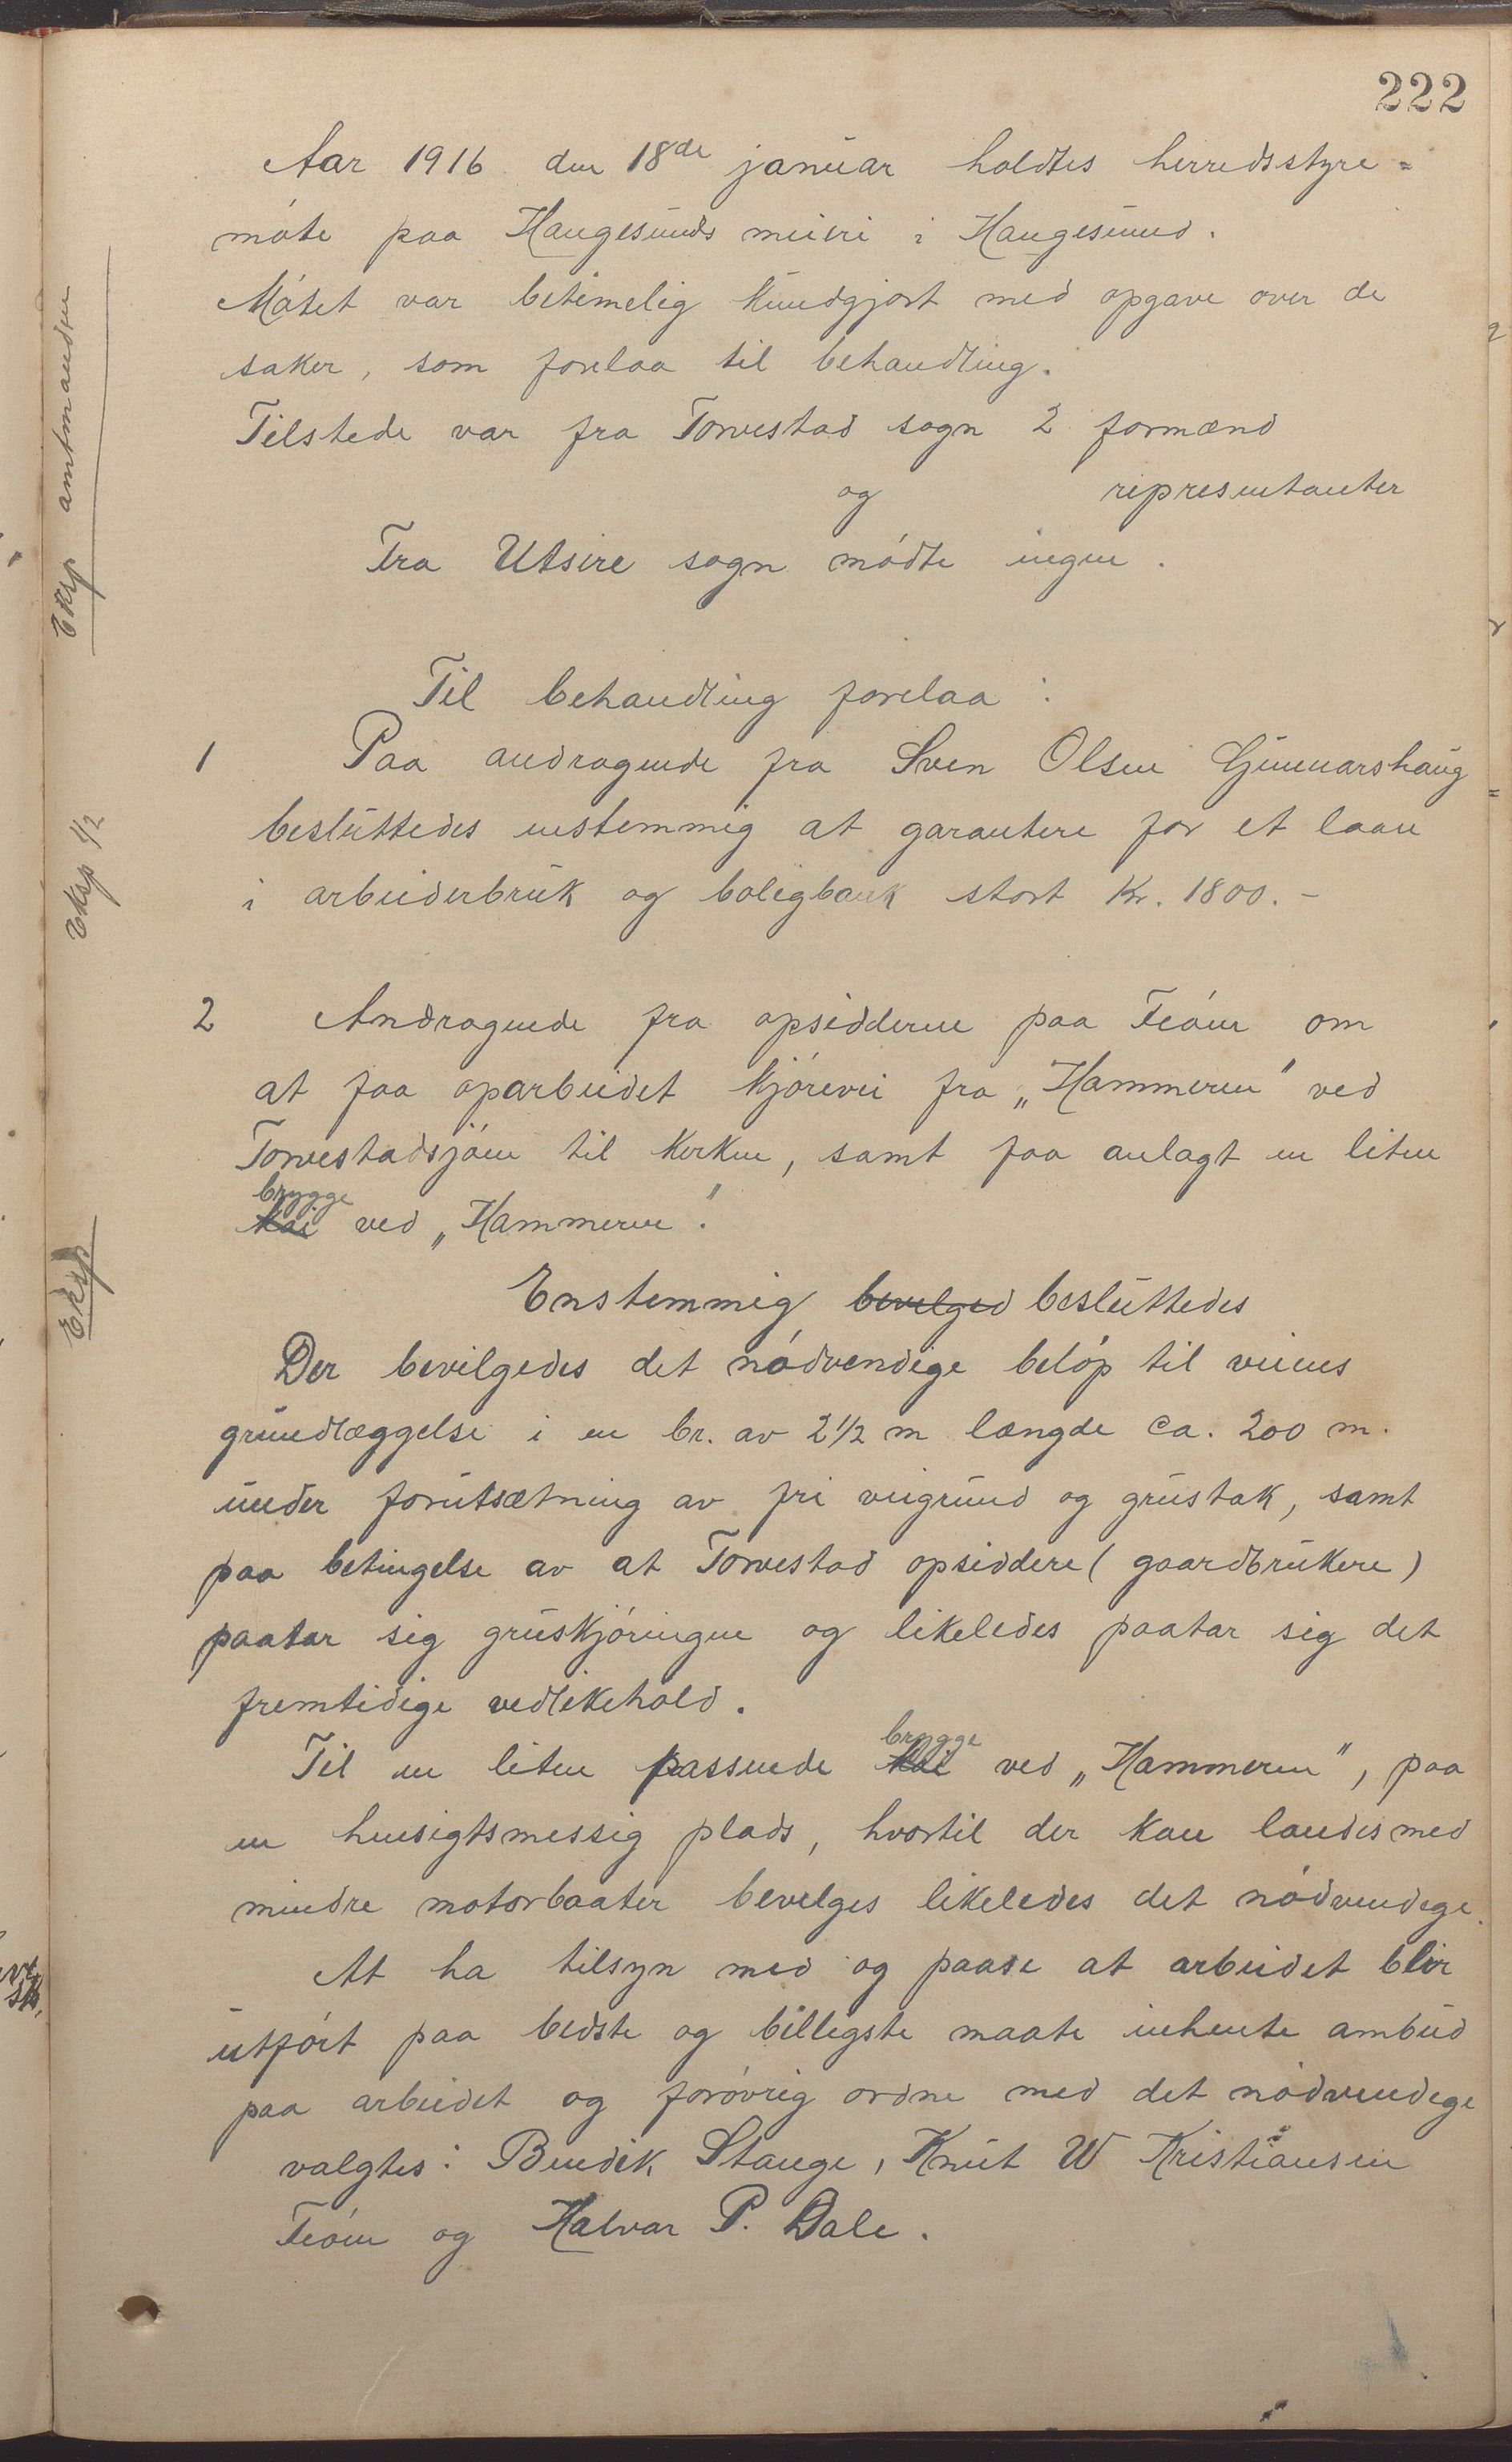 222
Aar 1916 den 18de januar holdtes herredsstyre=
møte paa Haugesunds meieri i Haugesund.
Møtet var betimelig kundgjort med opgave over de
saker, som forelaa til behandling.
Tilstede var fra Torvestad sogn 2 formænd
og representanter
Fra Utsire sogn mødte ingen.
Eksp amtmanden
Til behandling forelaa:
1 Paa andragende fra Sven Olsen Gunnarshaug
besluttedes enstemmig at garantere for et laan
i arbeiderbruk og boligbank stort Kr. 1800.-
Eksp 1/2
2 Andragende fra opsidderne paa Feøen om
at faa oparbeidet kjørevei fra „Hammeren" ved
Torvestadsjøen til kirken, samt faa anlagt en liten
brygge
kai ved „Hammeren".
Eksp
Enstemmig bevilged besluttedes
Der bevilgedes det nødvendige beløp til veiens
grundlæggelse i en br. av 2 1/2 m længde ca. 200 m.
under forutsætning av fri veigrund og grustak, samt
paa betingelse av at Torvestad opsiddere (gaardbrukere)
paatar sig gruskjøringen og likeledes paatar sig det
fremtidige vedlikehold.
brygge
Til en liten passende kai ved „Hammeren", paa
en hensigtsmessig plads, hvortil der kan landes med
mindre motorbaater bevilges likeledes det nødvendige.
At ha tilsyn med og paase at arbeidet blir
utført paa bedste og billigste maate inhente ambud
paa arbeidet og forøvrig ordne med det nødvendige
valgtes: Bendik Stange, Knut W Kristiansen
Feøen og Halvar P. Dale.